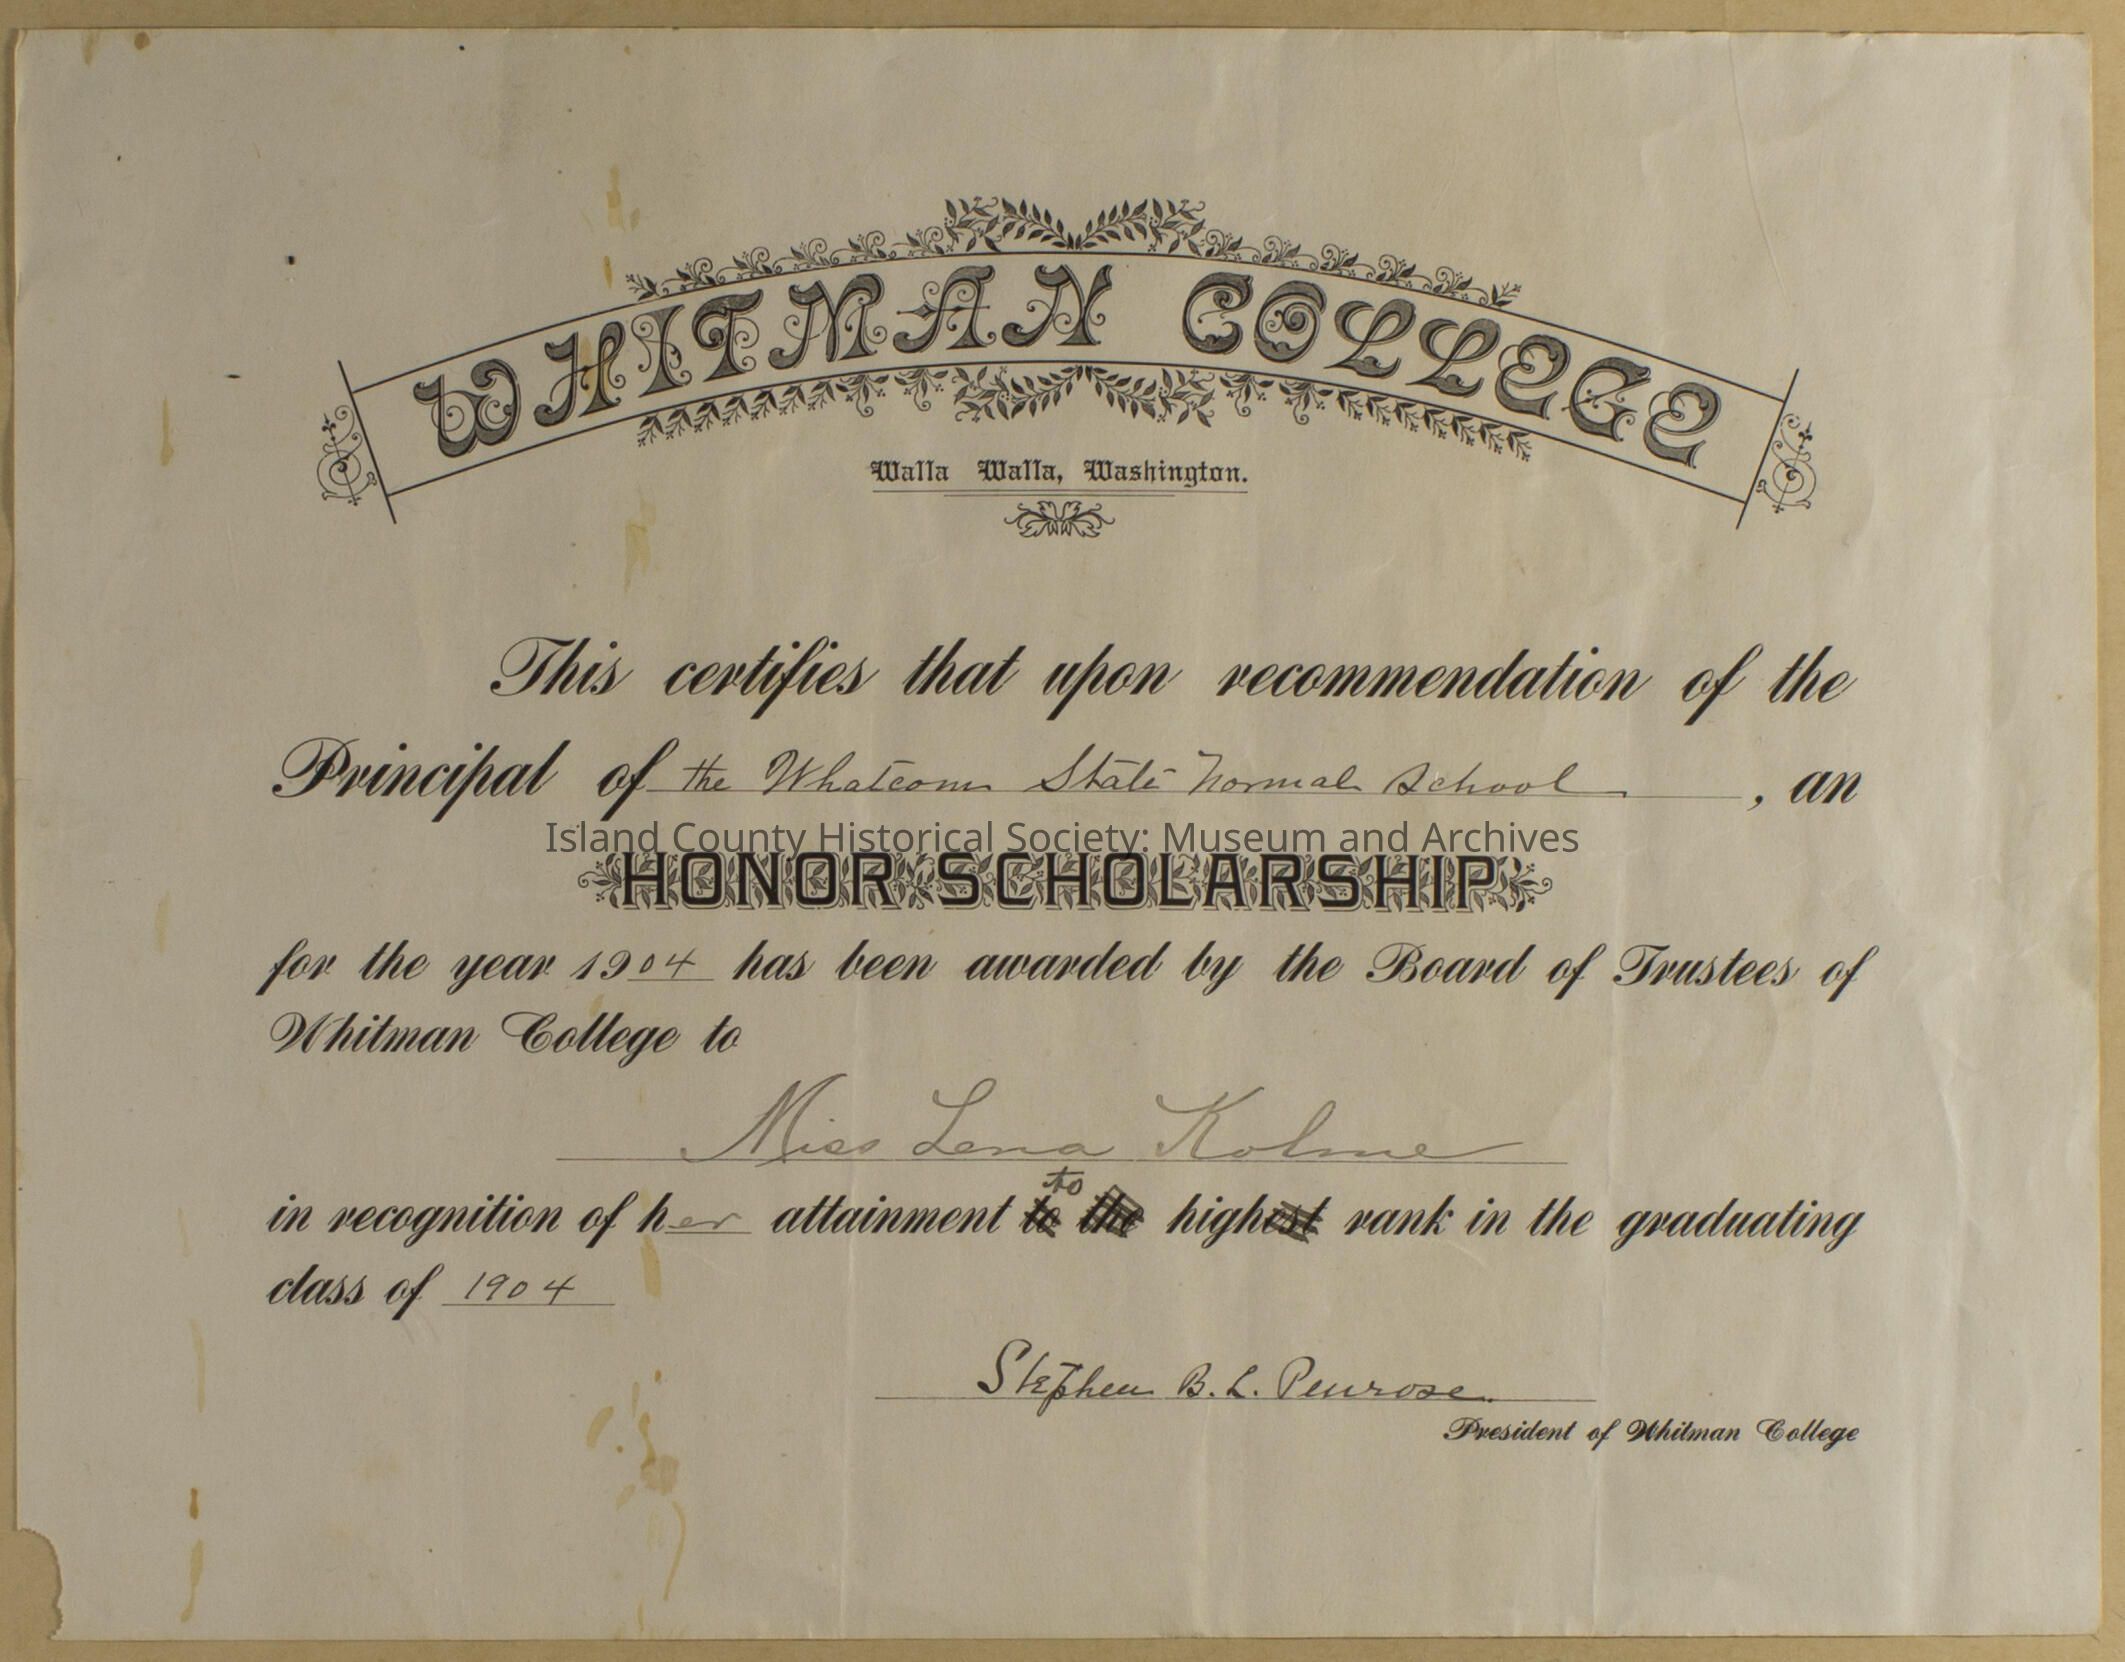 WHITMAN COLLEGE
Walla Walla, Washington.
This certifies that upon recommendation of the
Principal of the Whatcom State Normal School, an
Island County Historical Society: Museum and Archives
HONOR SCHOLARSHIP
for the year 1904 has been awarded by the Board of Trustees of
Whitman College to
Miss Lena Kolme
to
in recognition of her attainment to the highest rank in the graduating
class of 1904
Stephen B. L. Penrose.
President of Whitman College